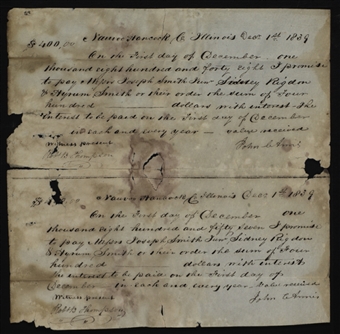 $400,00 Nauvoo Hancock Co Illinois Decr 1st 1839
On the First day of December one
thousand eight hundred and forty eight I promise
to pay Messrs Joseph Smith Junr Sidney Rigdon
& Hyrum Smith or their order the sum of Four
hundred dollars with interest the
interest to be paid on the First day of December
in each and every year — value received
witness present John C Annis
Robt B Thompson
Nauvoo Hancock Co Illinois Decr 1st 1839
On the First day of December one
thousand eight hundred and fifty seven I promise
to pay Messrs Joseph Smith Junr Sidney Rigdon
& Hyrum Smith or their order the sum of Four
hundred dollars with interest
interest to be paid on the First day of
December in each and every year value received
witness present John C Annis
Robt B Thompson